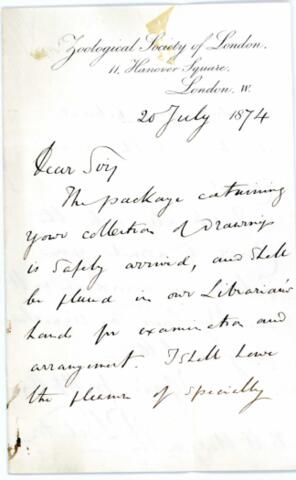 Zoological Society of London.
11, Hanover Square,
London. W.
20 July 1874
Dear Sir,
The package containing
your collection of Drawings
is safely arrived, and shall
be placed in our Librarian's
hands for examination and
arrangement. I shall have
the pleasure of specially